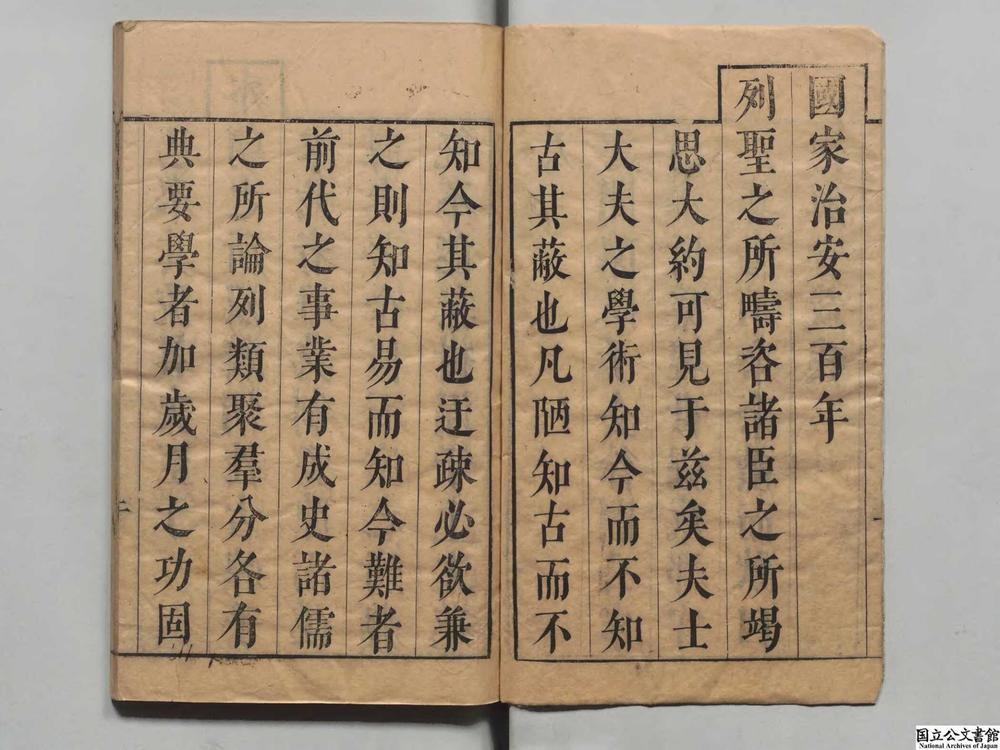 國家治安三百年
列聖之所疇咨諸臣之所竭
思大約可見于茲矣夫士
大夫之學術知今而不知
古其蔽也凡陋知古而不
一
知今其蔽也迂疎必欲兼
之則知古易而知今難者
前代之事業有成史諸儒
之所論列類聚羣分各有
典要學者加歲月之功固
二
国立公文書館
National Archives of Japan